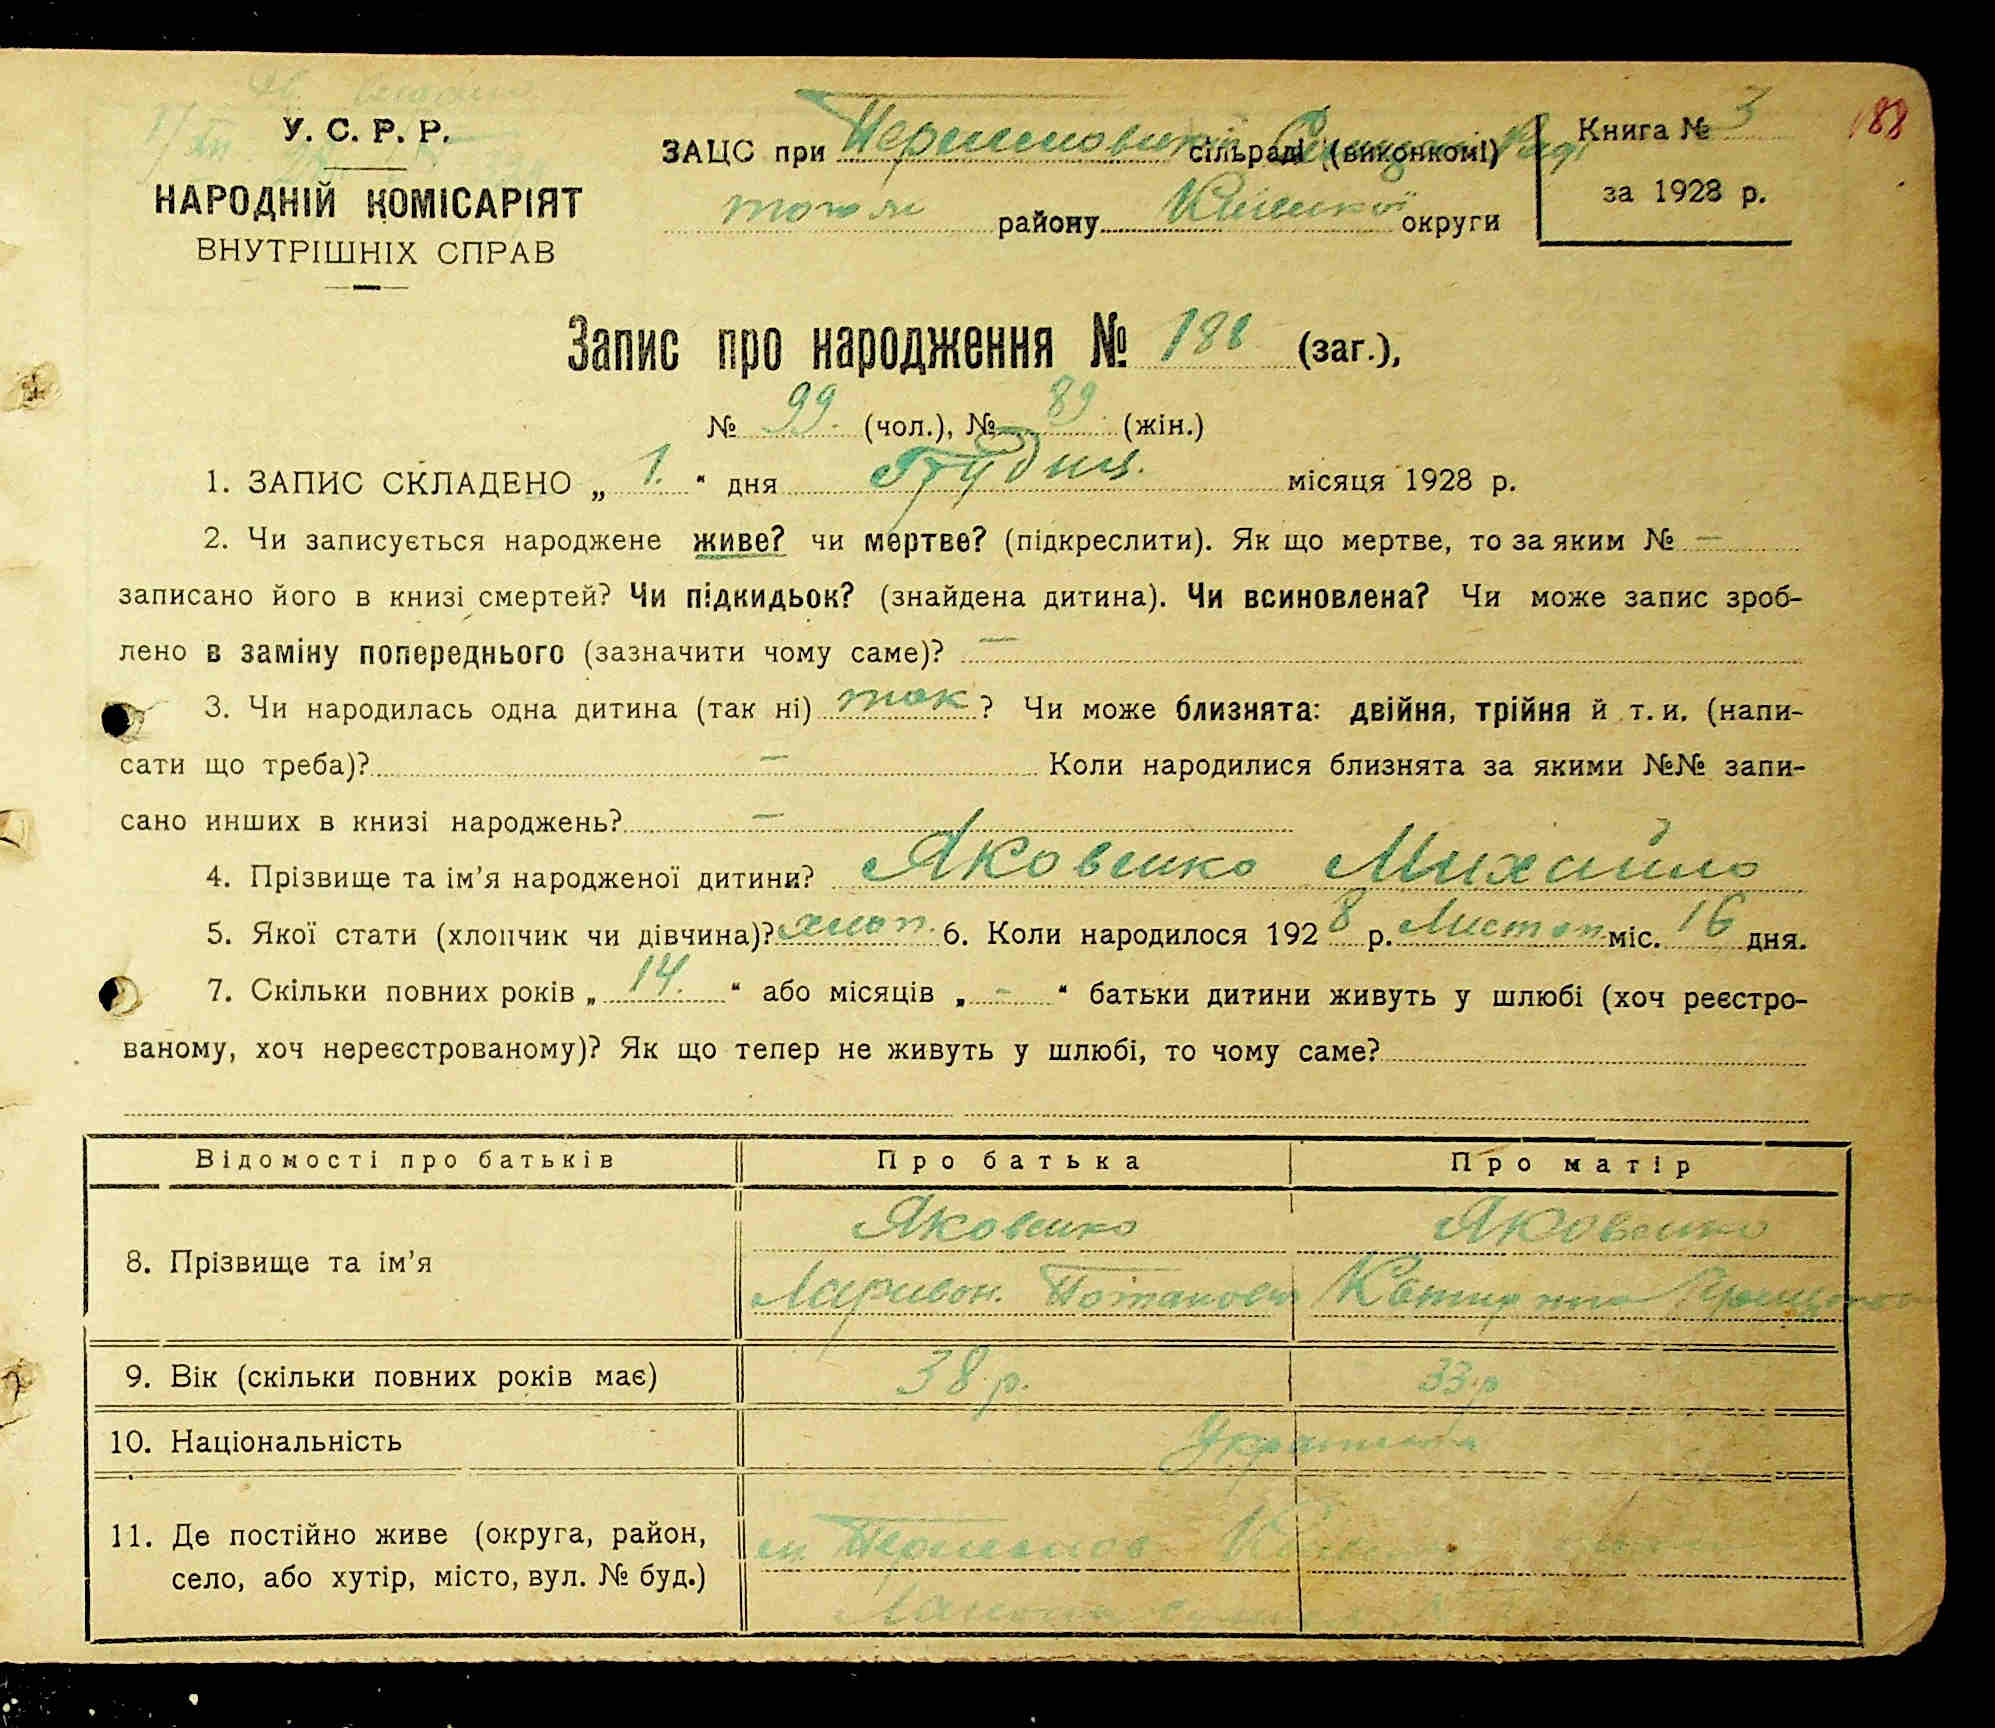 У. С. Р. Р.
НАРОДНІЙ КОМІСАРІЯТ
ВНУТРІШНІХ СПРАВ
ЗАЦС при сільраді (виконкомі)
того ж району Київської округи
Книга № 3
за 1928 р.
188
Запис про народження № 188 (заг.),
№ 99. (чол.), № 89 (жін.)
1. ЗАПИС СКЛАДЕНО „ 1. “ дня Грудня. місяця 1928 р.
2. Чи записується народжене живе? чи мертве? (підкреслити). Як що мертве, то за яким № —
записано його в книзі смертей? Чи підкидьок? (знайдена дитина). Чи всиновлена? Чи може запис зроб-
лено в заміну попереднього (зазначити чому саме)? —
3. Чи народилась одна дитина (так ні) так ? Чи може близнята: двійня, трійня й т. и. (напи-
сати що треба)? — Коли народилися близнята за якими №№ запи-
сано инших в книзі народжень? —
4. Прізвище та ім’я народженої дитини? Яковенко Михайло
5. Якої стати (хлопчик чи дівчина)? хлоп. 6. Коли народилося 1928 р. Листоп. міс. 16 дня.
7. Скільки повних років „ 14. “ або місяців „ - “ батьки дитини живуть у шлюбі (хоч реєстро-
ваному, хоч нереєстрованому)? Як що тепер не живуть у шлюбі, то чому саме?
Відомості про батьків Про батька Про матір
8. Прізвище та ім’я Яковенко Яковенко
Ларивон. Потапович
9. Вік (скільки повних років має) 38 р. 33 р
10. Національність
11. Де постійно живе (округа, район,
село, або хутір, місто, вул. № буд.)